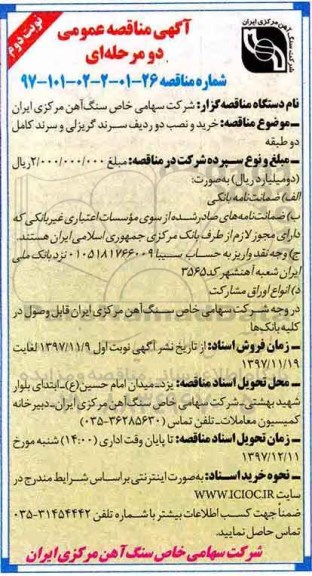 نوبت دوم
شرکت سنگ آهن مرکزی ایران
آگهی مناقصه عمومی
دو مرحله‌ای
شماره مناقصه ۲۶-۰۱-۲-۰۲-۱۰۱-۹۷
نام دستگاه مناقصه‌گزار: شرکت سهامی خاص سنگ‌آهن مرکزی ایران
ـ موضوع مناقصه: خرید و نصب دو ردیف سرند گریزلی و سرند کامل
دو طبقه
ـ مبلغ و نوع سپرده شرکت در مناقصه: مبلغ ۲/۰۰۰/۰۰۰/۰۰۰ ریال
(دو میلیارد ریال) به‌صورت:
الف) ضمانت‌نامه بانکی
ب) ضمانت‌نامه‌های صادرشده از سوی مؤسسات اعتباری غیربانکی که
دارای مجوز لازم از طرف بانک مرکزی جمهوری اسلامی ایران هستند.
ج) وجه نقد واریز به حساب سیبا ۰۱۰۵۱۸۱۷۶۶۰۰۹ نزد بانک ملی
ایران شعبه آهنشهر کد ۳۵۶۵
د) انواع اوراق مشارکت
در وجه شرکت سهامی خاص سنگ‌آهن مرکزی ایران قابل وصول در
کلیه بانک‌ها
ـ زمان فروش اسناد: از تاریخ نشر آگهی نوبت اول ۱۳۹۷/۱۱/۹ لغایت
۱۳۹۷/۱۱/۱۹
ـ محل تحویل اسناد مناقصه: یزد ـ میدان امام حسین(ع) ـ ابتدای بلوار
شهید بهشتی ـ شرکت سهامی خاص سنگ‌آهن مرکزی ایران ـ دبیرخانه
کمیسیون معاملات ـ تلفن تماس (۳۶۲۸۵۶۳۰-۰۳۵)
ـ زمان تحویل اسناد مناقصه: تا پایان وقت اداری (۱۴:۰۰) شنبه مورخ
۱۳۹۷/۱۲/۱۱
ـ نحوه خرید اسناد: به‌صورت اینترنتی براساس شرایط مندرج در
سایت WWW.ICIOC.IR
ضمناً جهت کسب اطلاعات بیشتر با شماره تلفن ۳۱۴۵۴۴۴۲-۰۳۵
تماس حاصل نمایید.
شرکت سهامی خاص سنگ آهن مرکزی ایران